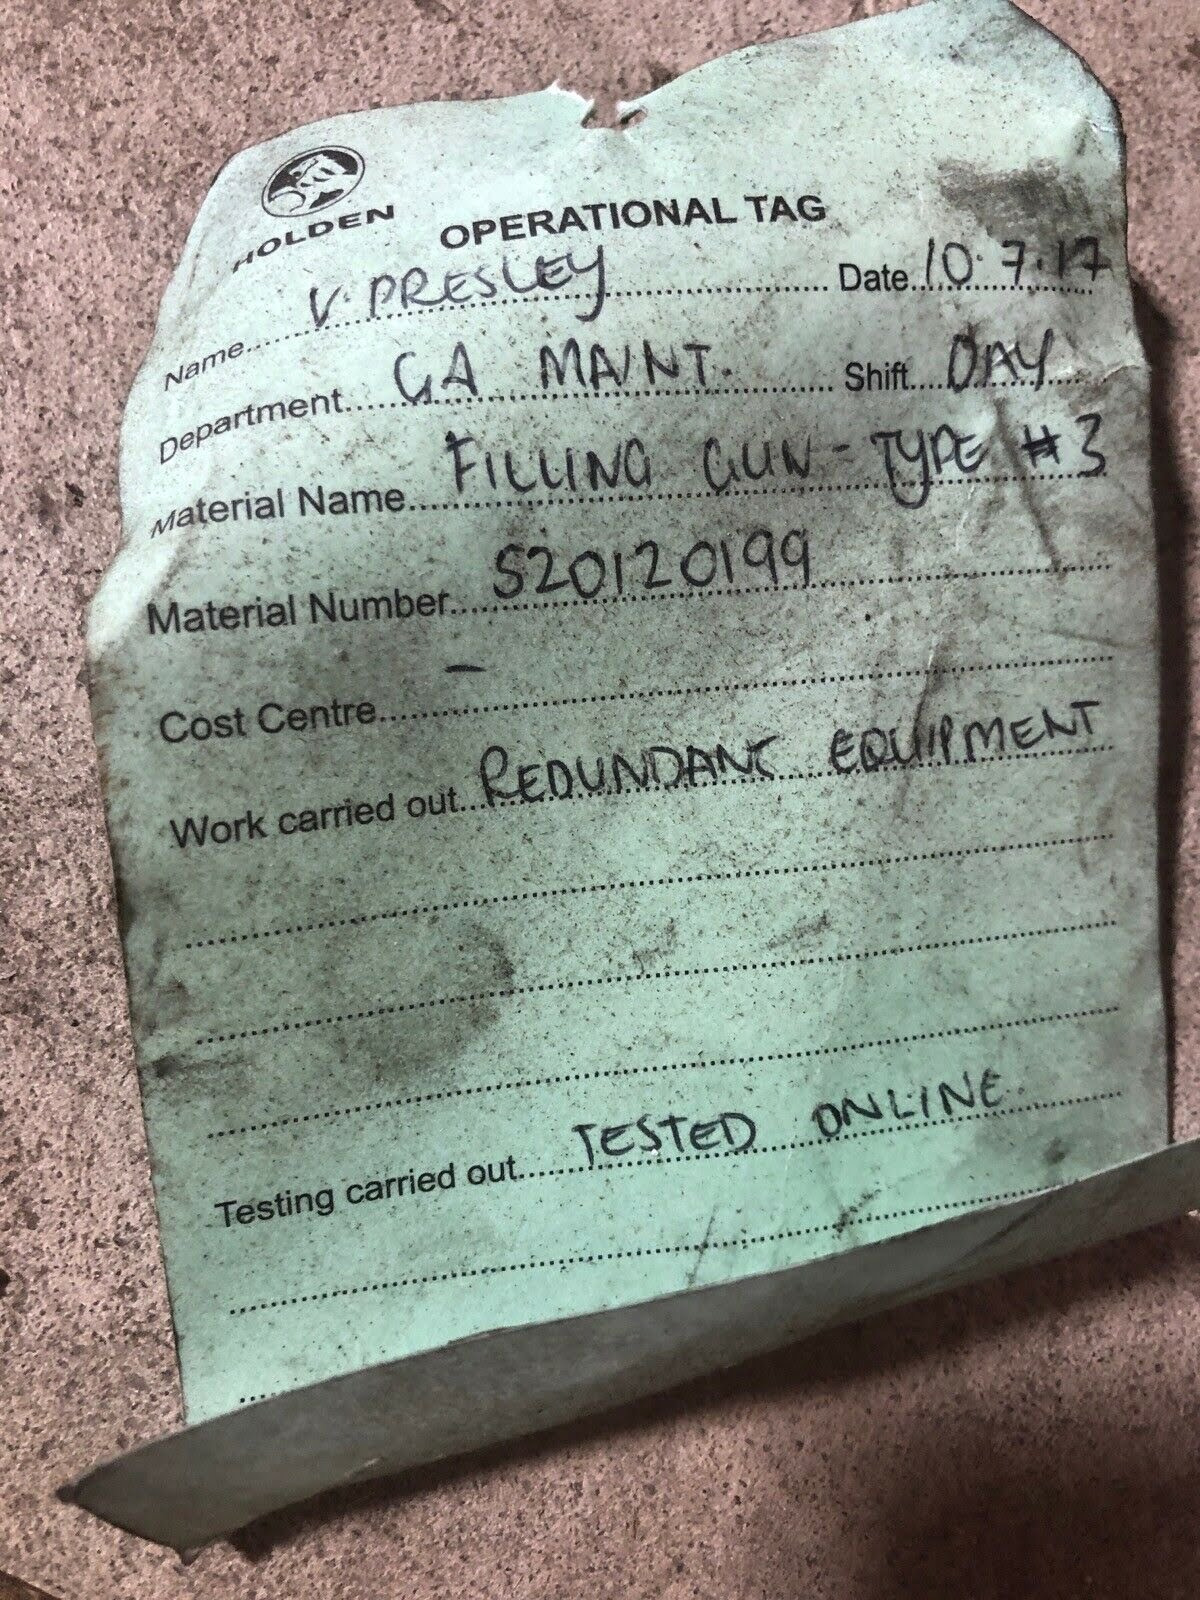 HOLDEN
OPERATIONAL TAG
Name..... V. PRESLEY ..... Date 10.7.17
Department..... GA MAINT. ..... Shift.... DAY
Material Name..... FILLING GUN - TYPE #3
Material Number.... S20120199
Cost Centre..... -
Work carried out... REDUNDANT EQUIPMENT
Testing carried out..... TESTED ONLINE.